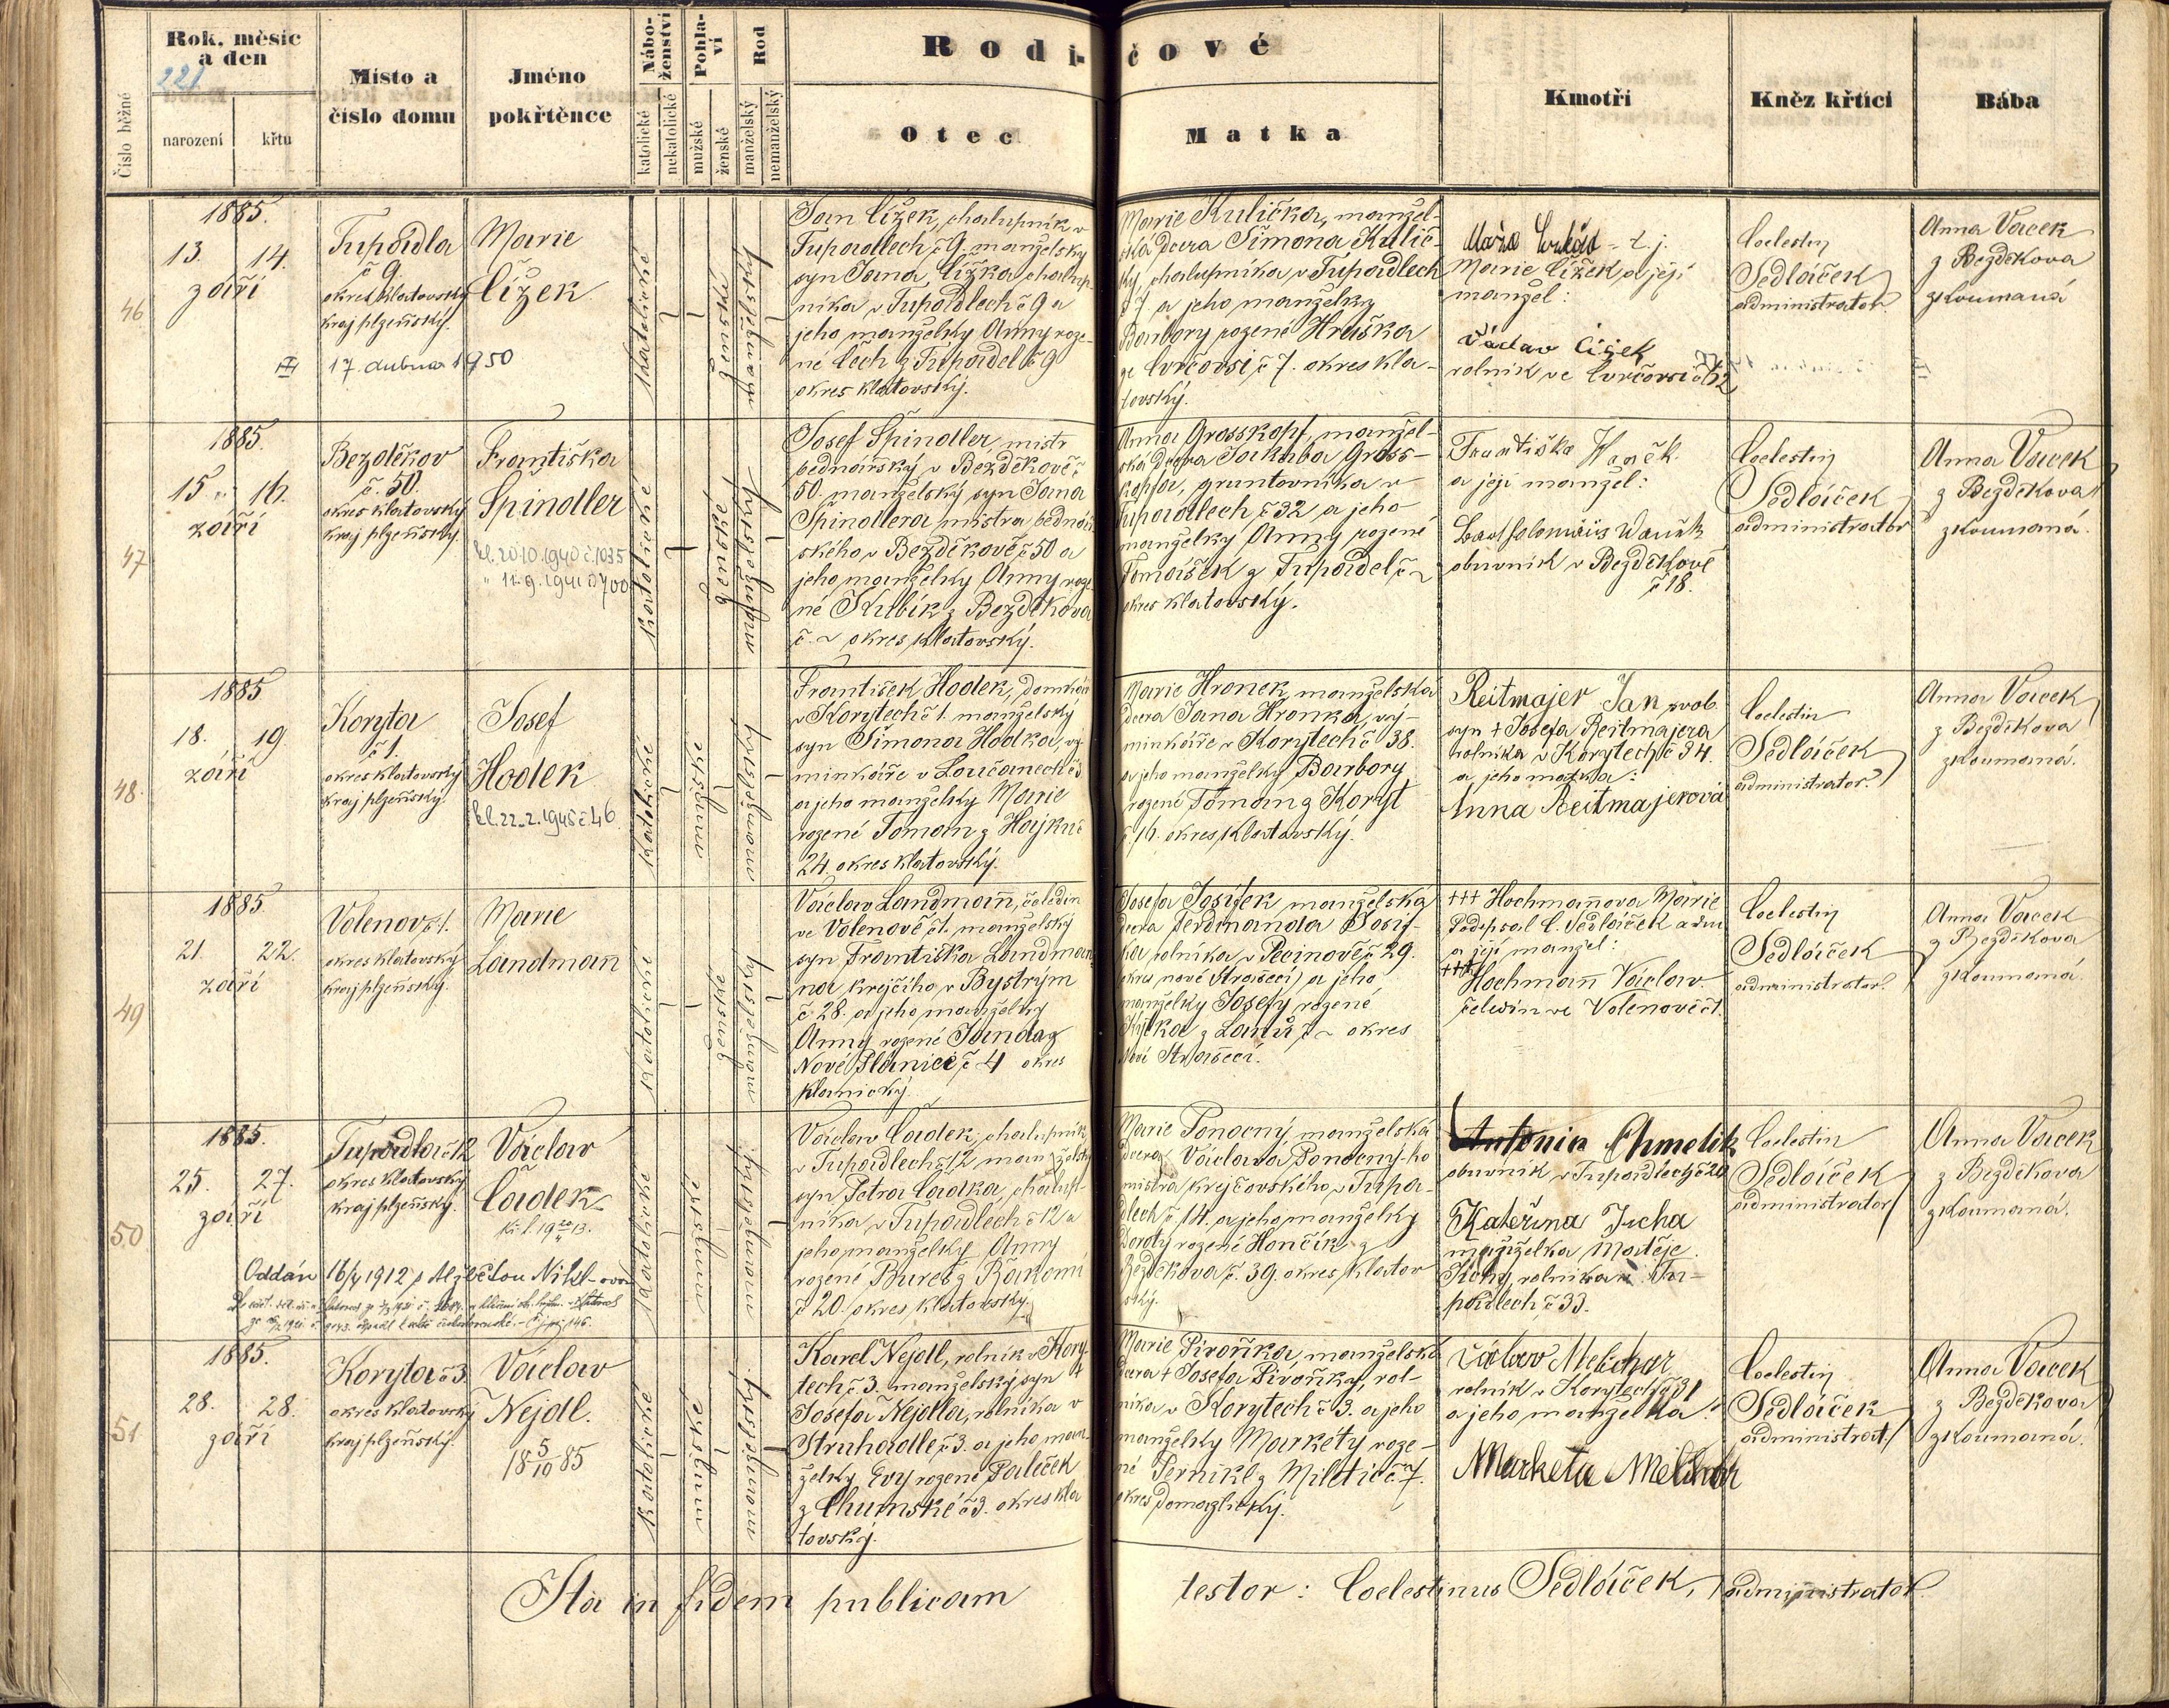 Rok, měsíc
a den
221
Číslo běžné
narození
křtu
Místo a
číslo domu
Jméno
pokřtěnce
Nábo-
ženství
katolické
nekatolické
Pohla-
ví
mužské
ženské
Rod
manželský
nemanželský
Rodi-
čové
Otec
Matka
Kmotři
Kněz křtící
Bába
46
1885.
13. 14.
září
Tupadla
č 9.
okres klatovský
kraj plzeňský.
17. dubna 1950
Marie
Čížek
katolické
ženské
manželský
Jan Čížek, chalupník v
Tupadlech č 9. manželský
syn Jana Čížka chalup-
níka v Tupadlech č 9 a
jeho manželky Anny roze-
né Čech z Tupadel č 9
okres klatovský.
Marie Kulička, manžel-
ská dcera Šimona Kulič-
ky, chalupníka v Tupadlech
č 7 a jeho manželky
Barbory rozené Hruška
ze Cvrčovsi č 7. okres kla-
tovský.
t. j.
Marie Čížek a její
manžel:
Václav Čížek
rolník ve Cvrčovsi č 12
Coelestin
Sedláček
administrator.
Anna Vacek
z Bezděkova
zkoumaná
47
1885.
15. 16.
září
Bezděkov
č. 50.
okres klatovský
kraj plzeňský.
Františka
Špindler
20.10.1940 č. 1035
" 11.9.1941 č 700
katolické
ženské
manželský
Josef Špindler, mistr
bednářský v Bezděkově č
50. manželský syn Jana
Špindlera mistra bednář-
ského v Bezděkově č 50 a
jeho manželky Anny roze-
né Kubík z Bezděkova
č. ~ okres klatovský.
Anna Grosskopf, manžel-
ská dcera Jakuba Gross-
kopfa, gruntovníka v
Tupadlech č 32 a jeho
manželky Anny rozené
Tomášek z Tupadel č ~
okres klatovský.
Františka
a její manžel:
obuvník v Bezděkově
č 18.
Coelestin
Sedláček
administrator
Anna Vacek
z Bezděkova
zkoumaná.
48.
1885
18. 19.
září
Koryta
č 1.
okres klatovský
kraj plzeňský.
Josef
Hodek
22.2.1945 č 46
katolické
mužské
manželský
František Hodek, domkář
v Korytech č 1. manželský
syn Šimona Hodka, vý-
minkáře v Loučanech č
a jeho manželky Marie
rozené Toman z Hájku č
24. okres klatovský.
Marie Hronek manželská
dcera Jana Hronka, vý-
minkáře v Korytech č 38.
a jeho manželky Barbory
rozené Toman z Koryt
č 16. okres klatovský.
Reitmajer Jan svob.
syn + Josefa Reitmajera
rolníka v Korytech č 34.
a jeho matka:
Anna Reitmajerová
Coelestin
Sedláček
administrator.
Anna Vacek
z Bezděkova
zkoumaná.
49
1885
21. 22.
září
Volenov č 1.
okres klatovský
kraj plzeňský.
Marie
Landmann
katolické
ženské
manželský
Václav Landmann, čeledín
ve Volenově č 1. manželský
syn Františka Landman-
na krejčího v Bystrým
č 28. a jeho manželky
Anny rozené Janda z
Nové Plánice č 4 okres
plánický.
Josefa Josífek manželská
dcera Ferdinanda Josíf-
ka rolníka v Pecinově č 29.
okres nové Strašecí a jeho
manželky Josefy rozené
z Lanů č ~ okres
Nové Strašecí.
+++ Hochmannova Marie
Podepsal C. Sedláček adm
a její manžel:
+++ Hochmann Václav
čeledín ve Volenově č 1.
Coelestin
Sedláček
administrator.
Anna Vacek
z Bezděkova
zkoumaná.
50
1885.
25. 27.
září
Tupadla č 12
okres klatovský
kraj plzeňský.
Václav
Čadek
Oddán 16/4 1912 s Alžbětou Nikl-ovou
katolické
mužské
manželský
Václav Čadek, chalupník
v Tupadlech č 12 manželský
syn Petra Čadka, chalup-
níka v Tupadlech č 12 a
jeho manželky Anny
rozené Bureš z Řákomi
č 20. okres klatovský.
Marie Ponocný, manželská
dcera Václava Ponocný-ho
mistra krejčovského v Tupa-
dlech č 14. a jeho manželky
Doroty rozené Hončík z
Bezděkova č. 39. okres klatov
ský.
Antonín Chmelík
obuvník v Tupadlech č 20
Kateřina Jucha
manželka Matěje
rolníka v Tu-
padlech č 33.
Coelestin
Sedláček
administrator
Anna Vacek
z Bezděkova
zkoumaná.
51
1885.
28. 28.
září
Koryta č 3
okres klatovský
kraj plzeňský.
Václav
Nejdl.
18 5/10 85
katolické
mužské
manželský
Karel Nejdl, rolník v Kory-
tech č 3. manželský syn +
Josefa Nejdla, rolníka v
Struhadle č 3. a jeho man
želky Evy rozené Paleček
z Chumské č 3. okres kla
tovský.
Marie Pivoňka, manželská
dcera + Josefa Pivoňky, rol-
níka v Korytech č 3. a jeho
manželky Markéty roze-
né Pernikl z Miletic č 7.
okres Domažlický.
Václav Melichar
rolník v Korytech č 31
a jeho manželka:
Marketa Melichar
Coelestin
Sedláček
administrat.
Anna Vacek
z Bezděkova
zkoumaná.
Ita in fidem publicam testor: Coelestinus Sedláček, administrator.